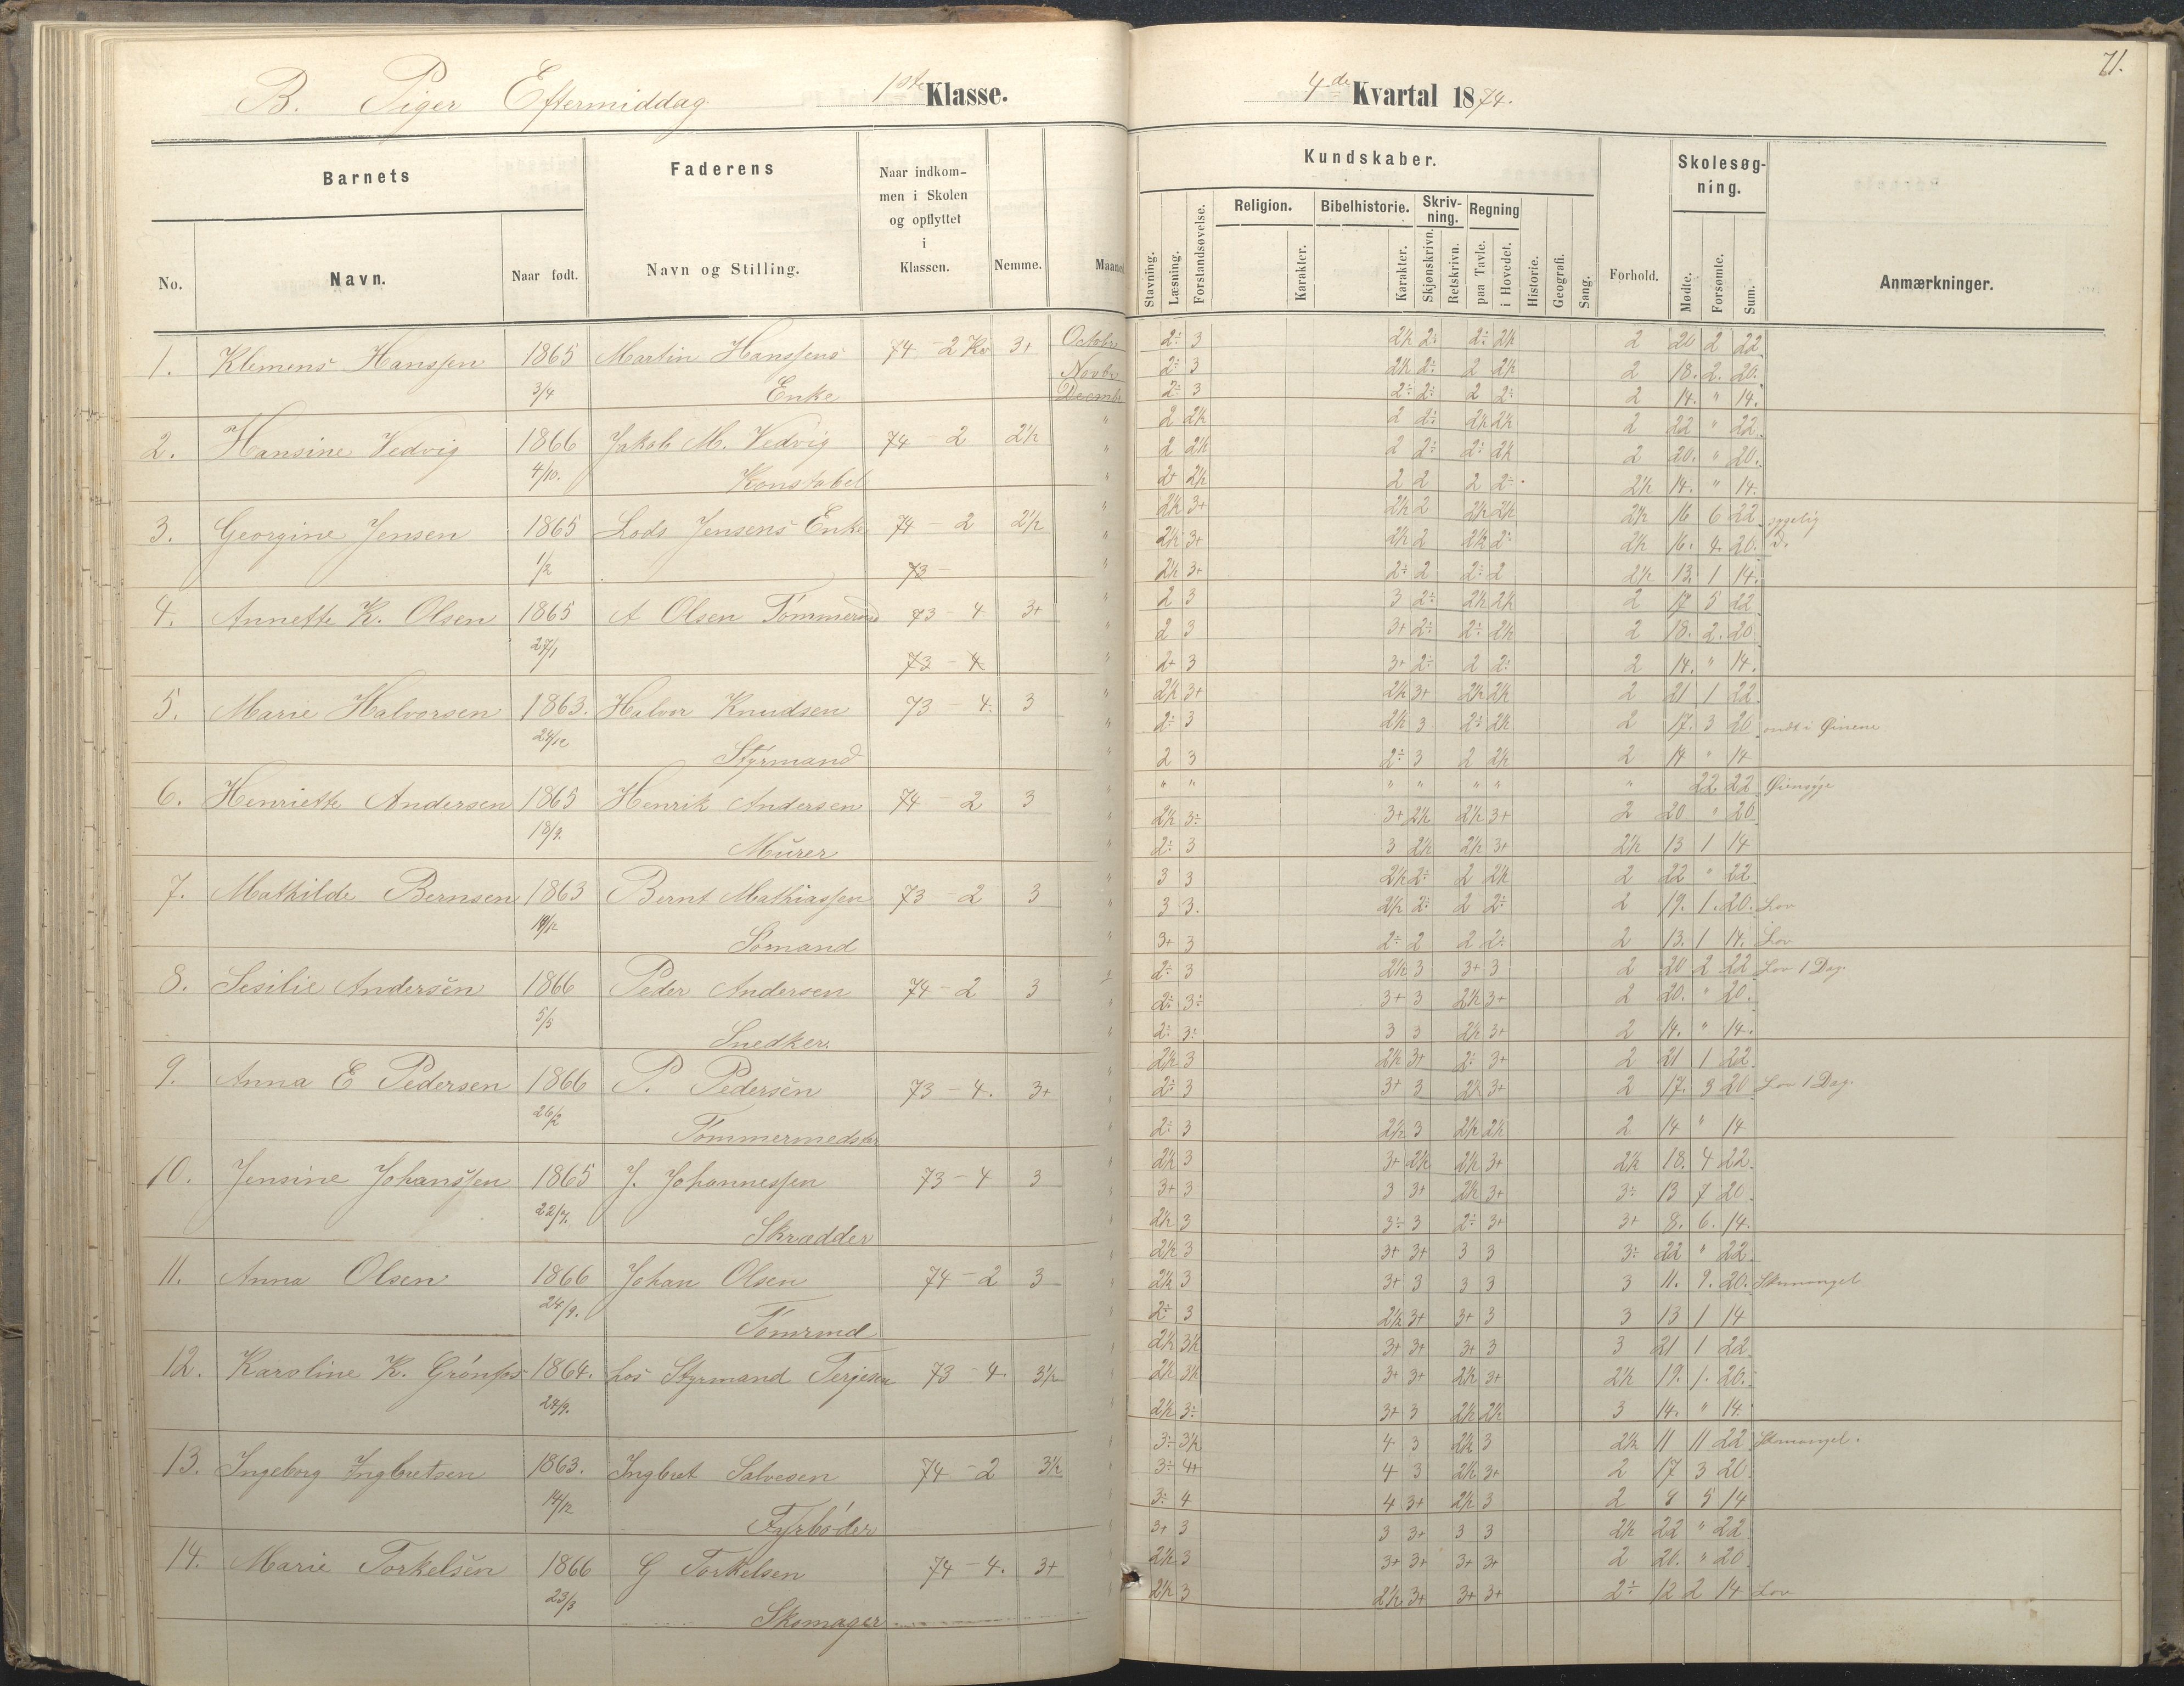 71.
B. Piger Eftermiddag. 1ste Klasse.
4de Kvartal 1874.
Barnets
Faderens
Naar indkom-
men i Skolen
og opflyttet
i
Klassen.
No.
Navn.
Naar født.
Navn og Stilling.
Nemme.
Maaned
Kundskaber.
Stavning.
Læsning.
Forstandsøvelse.
Religion.
Karakter.
Bibelhistorie.
Karakter.
Skriv-
ning.
Skjønskrivn.
Retskrivn.
Regning
paa Tavle.
i Hovedet.
Historie.
Geografi.
Sang.
Forhold.
Skolesøg-
ning.
Mødte.
Forsømte.
Sum.
Anmærkninger.
1. Klemens Hanssen 1865 Martin Hanssens 74 - 2 Kv 3+ Octobr 2÷ 3 2½ 2÷ 2÷ 2½ 2 20 2 22
Novbr 2÷ 3 2½ 2÷ 2 2½ 2 18. 2. 20.
3/4 Enke Decembr 2÷ 3 2÷ 2÷ 2 2÷ 2 14. " 14.
2. Hansine Vedvig 1866 Jakob M. Vedvig 74 - 2 2½ " 2 2½ 2 2÷ 2½ 2½ 2 22 " 22
" 2 2½ 2 2÷ 2÷ 2½ 2 20. " 20.
4/10. Konstabel " 2+ 2½ 2 2 2 2÷ 2½ 14. " 14.
3. Georgine Jensen 1865 Lods Jensens Enke 74 - 2 2½ 2½ 3+ 2½ 2 2½ 2½ 2½ 16 6 22 sygelig
" 2½ 3+ 2½ 2 2½ 2÷ 2½ 16. 4. 20. D.
1/2 73 - " 2½ 3+ 2÷ 2 2÷ 2 2½ 13. 1 14.
4. Annette K. Olsen 1865 A Olsen Tømmermd 73 - 4 3+ " 2 3 3 2÷ 2½ 2½ 2 17 5 22
" 2 3 3+ 2÷ 2÷ 2½ 2 18. 2. 20
27/1 73 - 4 " 2+ 3 3+ 2÷ 2 2÷ 2 14. " 14.
5. Marie Halvorsen 1863. Halvor Knudsen 73 - 4. 3 " 2½ 3+ 2½ 3+ 2½ 2½ 2 21 1 22
" 2÷ 3 2½ 3 2÷ 2½ 2 17. 3 20 ondt i Øinene
24/12 Styrmand " 2 3 2÷ 3 2 2½ 2 14 " 14
6. Henriette Andersen 1865 Henrik Andersen 74 - 2 3 " " " " " " " " 22 22 Øiensyge
" 2½ 3÷ 3+ 2½ 2½ 3+ 2 20 " 20
18/9. Murer " 2÷ 3 3 2½ 2½ 3+ 2½ 13 1 14
7. Mathilde Bernsen 1863 Bernt Mathiassen 73 - 2 3 " 3 3 2½ 2÷ 2 2½ 2 22 " 22
" 3 3. 2½ 2÷ 2 2÷ 2 19. 1. 20. Lov
Sømand " 3+ 3 2÷ 2 2 2÷ 2 13. 1 14. Lov
8. Sesilie Andersen 1866 Peder Andersen 74 - 2 3 2÷ 3 2½ 3 3+ 3 2 20 2 22 Lov 1 Dag.
" 2÷ 3÷ 3+ 3 2½ 3+ 2 20. " 20.
5/5 Snedker. " 2÷ 3÷ 3 3 2½ 3+ 2 14. " 14.
9. Anna E Pedersen 1866 P. Pedersen 73 - 4. 3+ 2½ 3 2½ 3+ 2÷ 3+ 2 21 1 22
2÷ 3 3+ 3 2½ 3+ 2 17. 3 20 Lov 1 Dag.
26/2 Tømmermedster 2÷ 3 2½ 3 2½ 2½ 2 14 " 14
10. Jensine Johanssen 1865 J. Johannessen 73 - 4 3 2½ 3 3+ 2½ 2½ 3+ 2½ 18. 4 22.
3+ 3 3 3+ 2½ 3+ 3÷ 13 7 20.
22/7. Skrædder 2½ 3 3÷ 3 2÷ 3+ 3+ 8. 6. 14.
11. Anna Olsen 1866 Johan Olsen 74 - 2 3 2½ 3 3+ 3+ 3 3 3÷ 22 " 22
2½ 3 3+ 3 3 3 3 11. 9. 20. Skomangel
24/9. Tømrmd 2÷ 3 2½ 3+ 3+ 3 3 13 1 14
12. Karoline K. Grønfos 1864. hos Styrmand Terjesen 73 - 4. 3½ 2½ 3½ 3+ 3+ 3+ 3 3 21 1 22
2½ 3½ 3+ 3+ 2½ 3+ 2½ 19. 1. 20.
24/9. 2½ 3÷ 3+ 3 2½ 2½ 3 14. " 14.
13. Ingeborg Ingbretsen 1863. Ingbret Salvesen 74 - 2 3½ 3÷ 3½ 4 3 2½ 3 2½ 11 11 22 Skmangel.
3÷ 4+ 4 3 2½ 3+ 2 17 3 20
14/12 Fyrbøder 3÷ 4 4 3+ 2½ 3 2 5 14
14. Marie Torkelsen 1866 G Torkelsen 74 - 4. 3+ 3+ 3 3 3+ 3 3 2½ 22 " 22
2½ 3 3+ 3+ 3+ 3+ 2 20. " 20
23/3 Skomager 2½ 3 2½ 3+ 3+ 3+ 2÷ 12 2 14 Lov